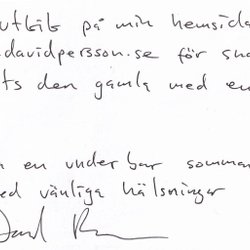 utbib på min hemsida
davidpersson.se för sna
ts den gamla med en
en underbar somman
ed vänliga hälsninger